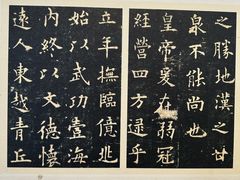 之勝地漢之甘
泉不能尚也
皇帝爰在弱冠
經營四方逮乎
立年撫臨億兆
始以武功壹海
內終以文德懷
遠人東越青丘